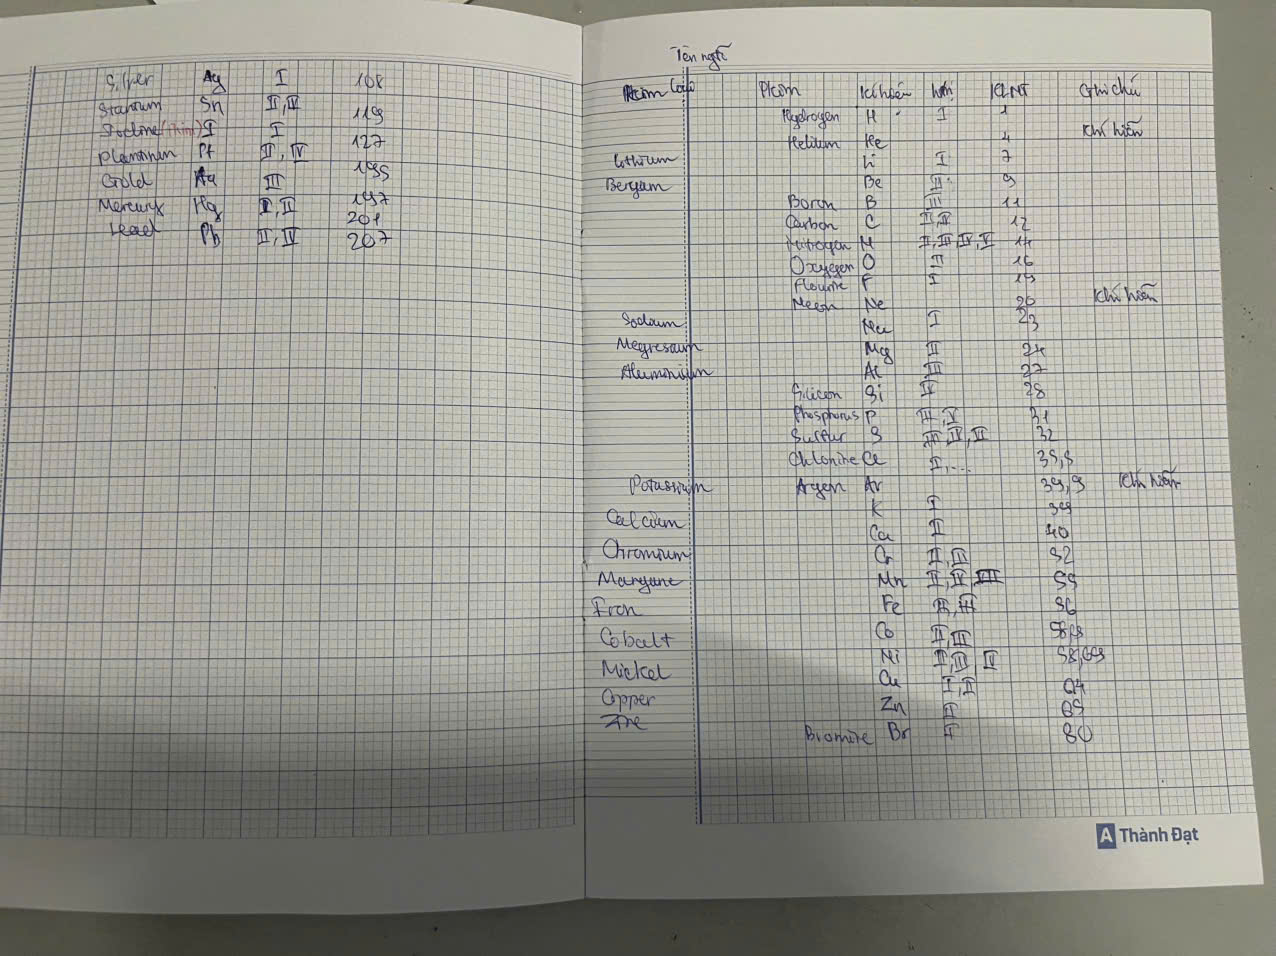 Silver Ag I 108
Stannum Sn II, IV 119
Iodine (Pkim) I I 127
Plantinum Pt II, IV 195
Gold Au III 197
Mercury Hg I, II 201
Lead Pb II, IV 207
Tên ngtố
Kim loại Pkim Kí hiệu htrị KLNT Ghi chú
Hydrogen H I 1
Helium He 4 Khí hiếm
Lithium Li I 7
Be II 9
Boron B III 11
Carbon C II, IV 12
Nitrogen N II, III, IV, V 14
Oxygen O II 16
Flourine F I 19
Neon Ne 20 Khí hiếm
Sodium Na I 23
Magnesium Mg II 24
Aluminium Al III 27
Silicon Si IV 28
Phosphorus P III, V 31
Sulfur S II, IV, VI 32
Chlorine Cl I,... 35,5
Argon Ar 39,9 Khí hiếm
Potassium K I 39
Calcium Ca II 40
Chromium Cr II, III 52
Mangane Mn II, IV, VII 55
Iron Fe II, III 56
Cobalt Co II, III
Nickel Ni II, III 58,69
Copper Cu I, II 64
Zinc Zn II 65
Bromine Br I 80
A Thành Đạt